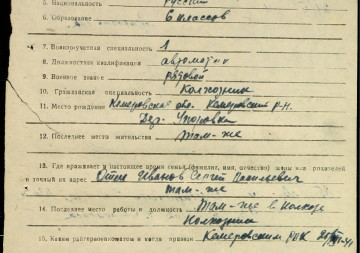 5. Национальность русский
6. Образование 6 классов
7. Военно-учетная специальность 1
8. Должностная квалификация автоматчик
9. Военное звание рядовой
10. Гражданская специальность Колхозник
11. Место рождения Кемеровская обл. Кемеровский р-н.
Дер.
12. Последнее место жительства там-же
13. Где проживает в настоящее время семья (фамилия, имя, отчество) жены или родителей
и точный их адрес Отец Иванов Сергей
там-же
14. Последнее место работы и должность там-же в колхозе
Колхозник
15. Каким райгорвоенкоматом и когда призван Кемеровским РВК